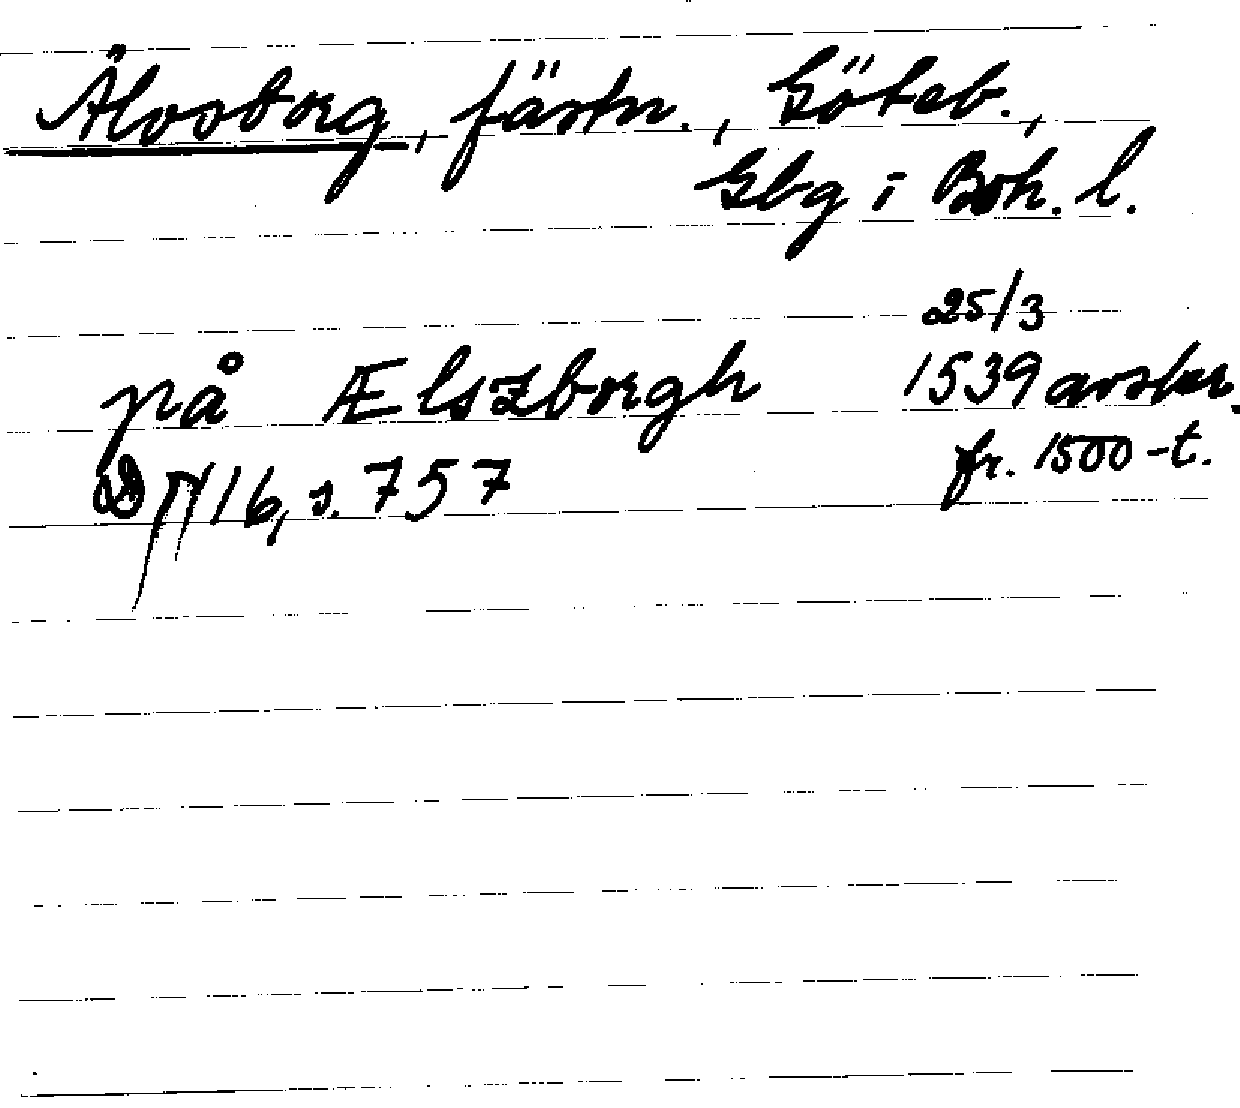 Älvsborg, fästn., Göteb.,
Gbg i Boh. l.
25/3
på Ælszborgh 1539 avskr.
DN 16, s. 757 fr. 1500-t.